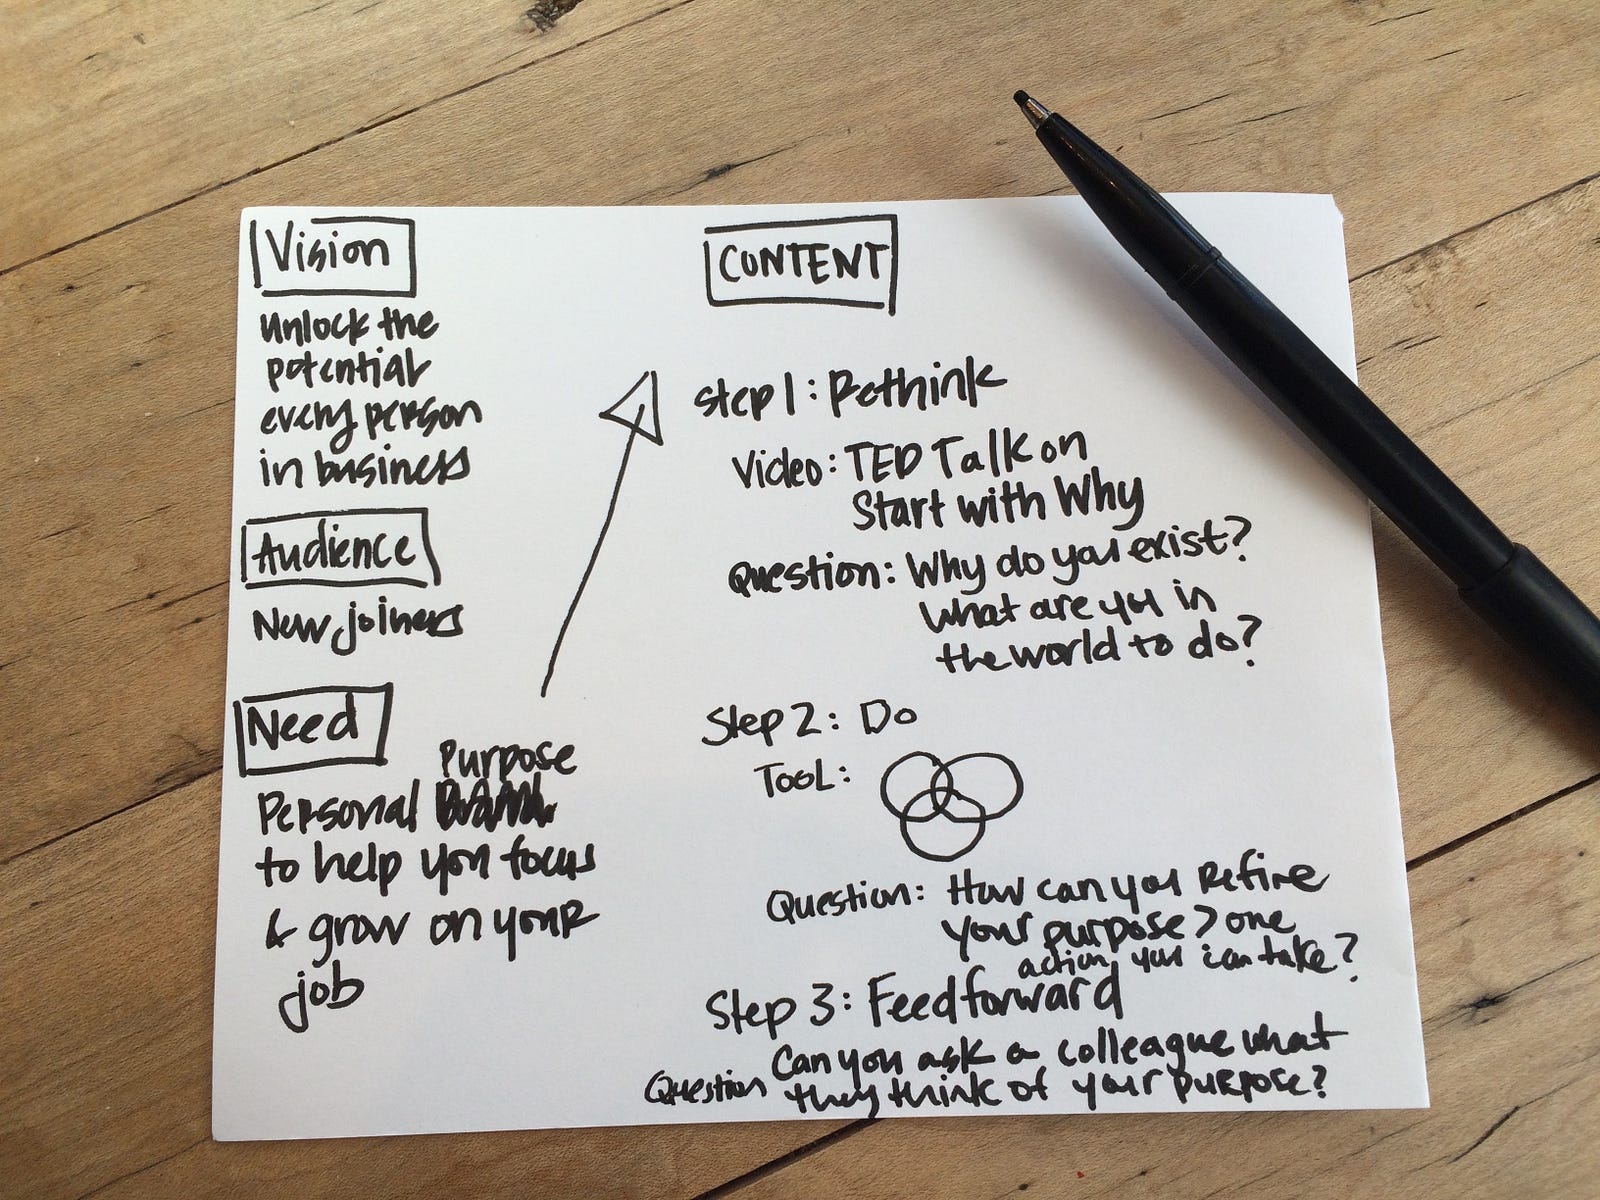 Vision
unlock the
potential
every person
in business
Audience
New joiners
Need
Purpose
Personal
to help you focus
& grow on your
job
CONTENT
Step 1: Rethink
Video: TED Talk on
Start with Why
Question: Why do you exist?
What are you in
the world to do?
Step 2: Do
TOOL:
Question: How can you refine
your purpose > one
action you can take?
Step 3: Feedforward
Can you ask a colleague what
Question they think of your purpose?